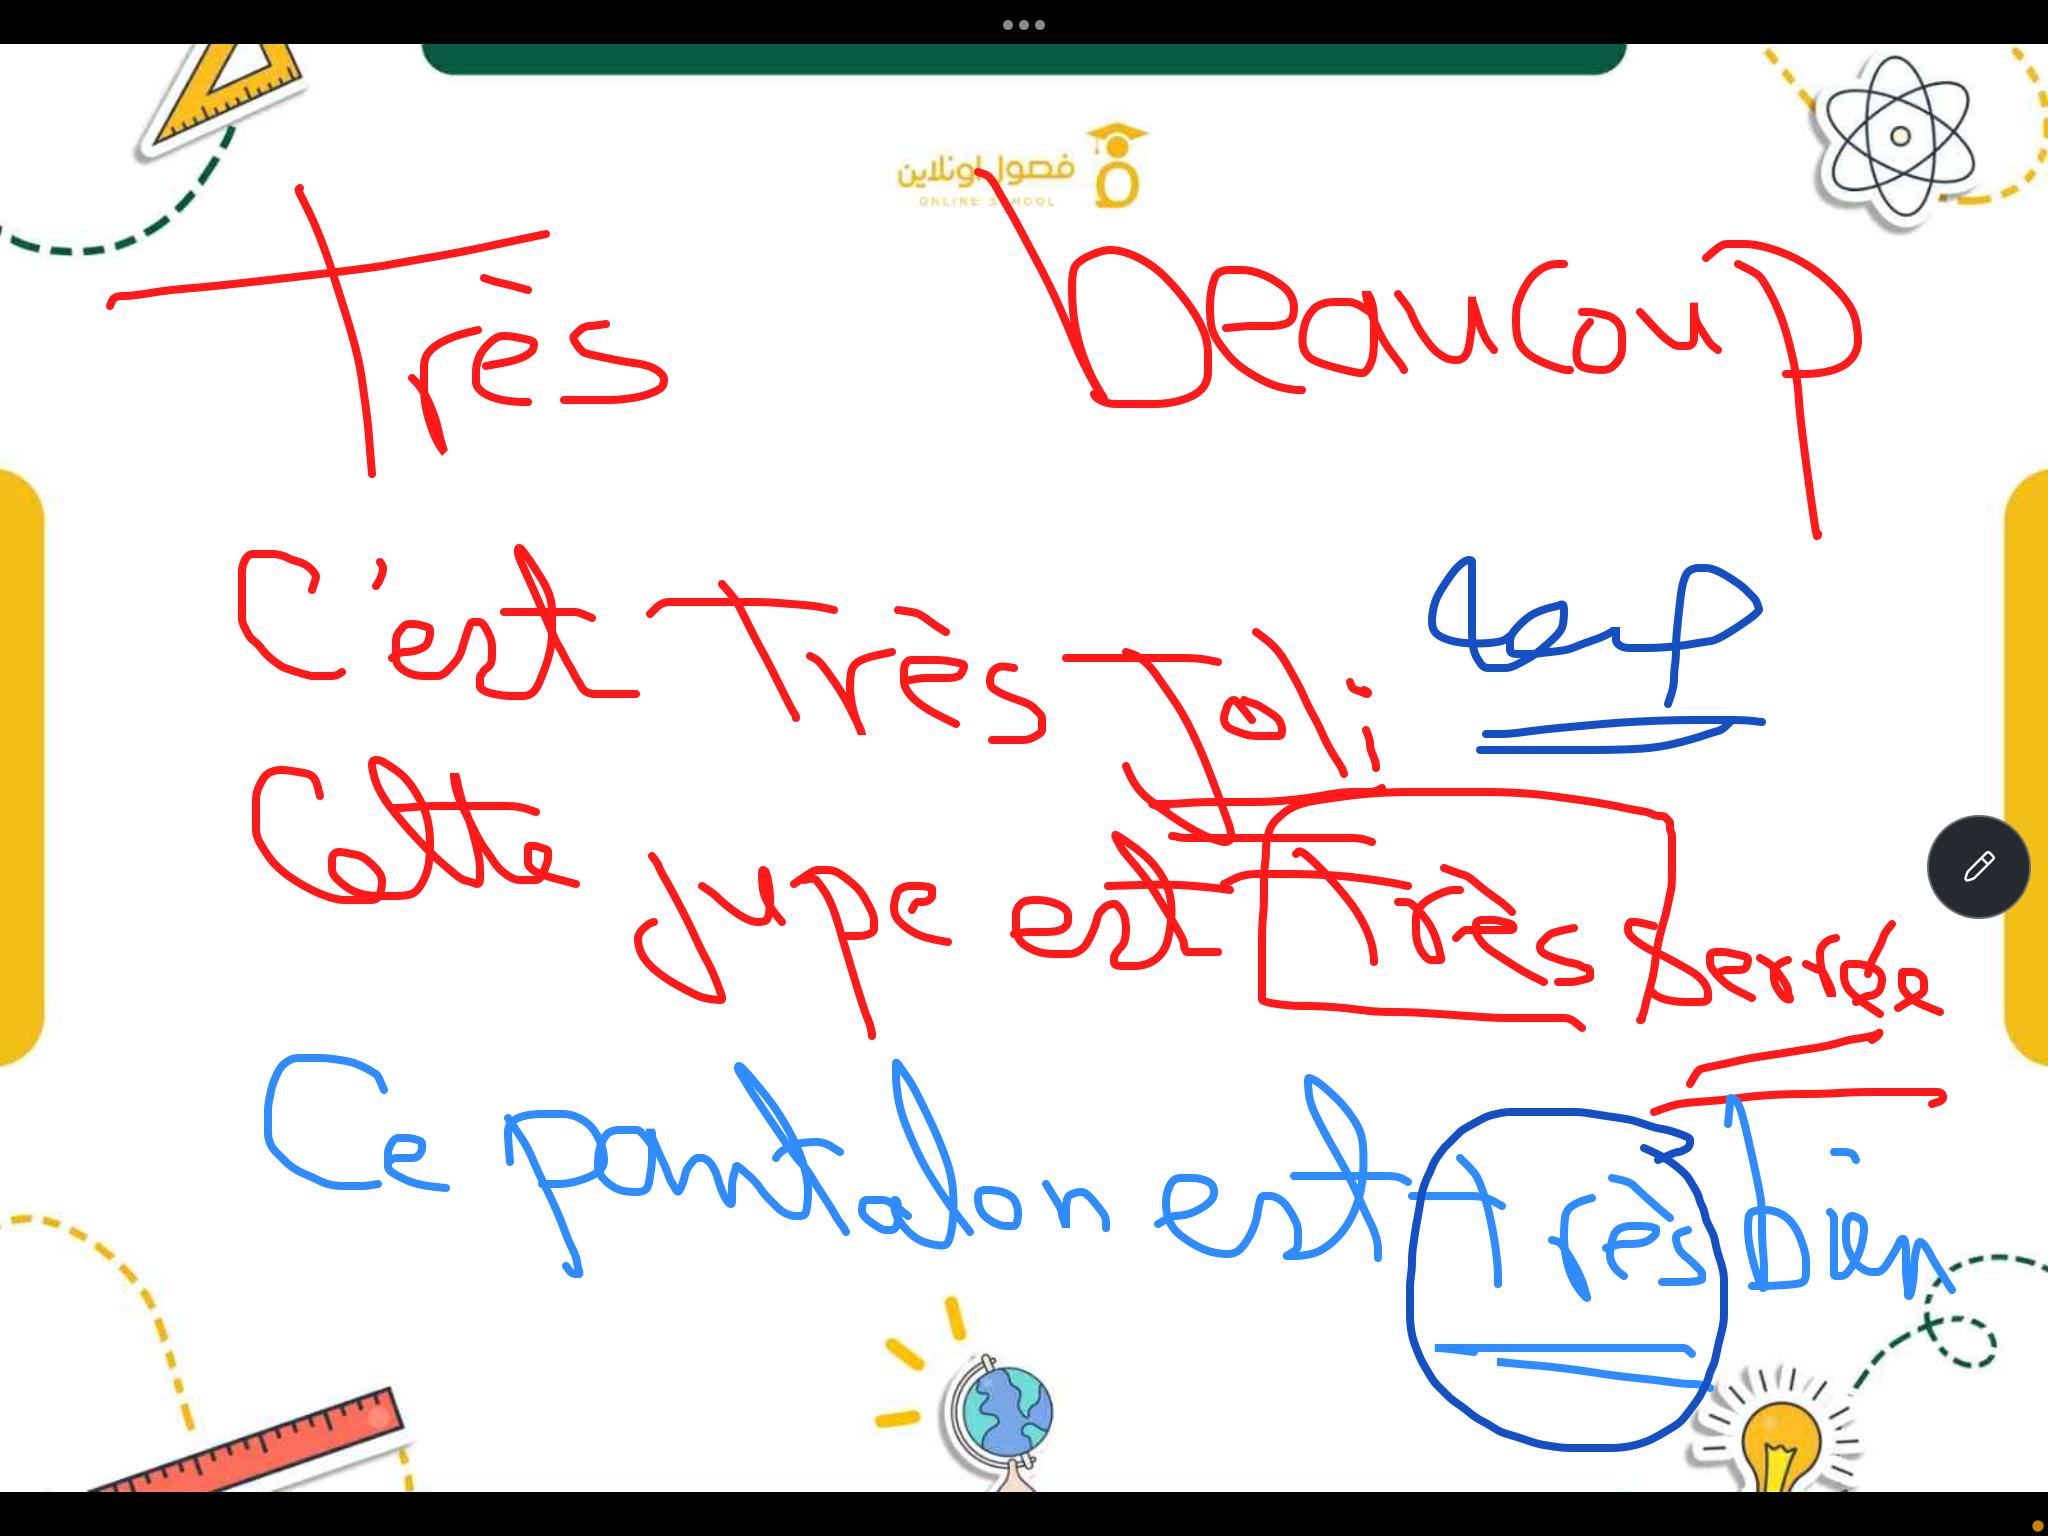 فصول اونلاين
ONLINE SCHOOL
Très beaucoup
C'est Très Joli
Cette jupe est Très serrée
Ce pantalon est Très bien